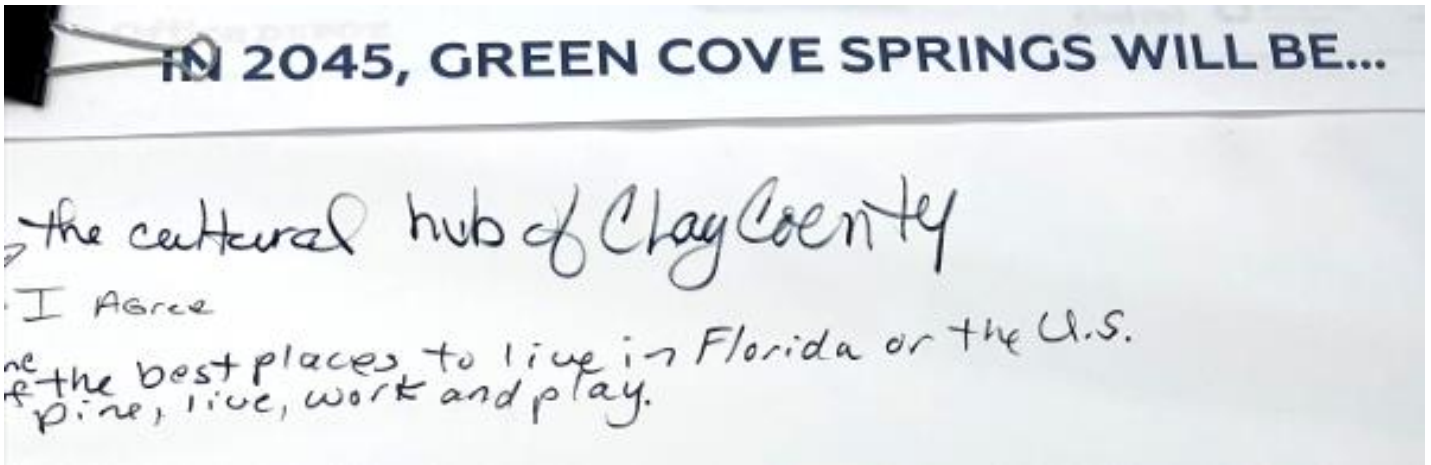 IN 2045, GREEN COVE SPRINGS WILL BE...
the cultural hub of Clay County
I Agree
the best places to live in Florida or the U.S.
pine, live, work and play.